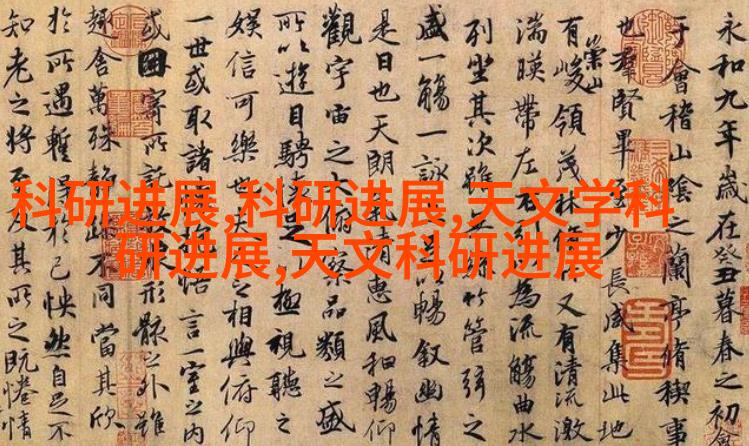 科研进展,科研进展,天文学科
研进展,天文科研进展
永和九年歲在癸丑暮春之初會
于會稽山陰之蘭亭脩稧事
也群賢畢至少長咸集此地
有崇山峻領茂林脩竹又有清流激
湍暎帶左右引以為流觴曲水
列坐其次雖無絲竹管弦之
盛一觴一詠亦足以暢敘幽情
是日也天朗氣清惠風和暢仰
觀宇宙之大俯察品類之盛
所以遊目騁懷足以極視聽之
娛信可樂也夫人之相與俯仰
一世或取諸懷抱悟言一室之內
或因寄所託放浪形骸之外雖
趣舍萬殊靜躁不同當其欣
於所遇蹔得於己怏然自足不
知老之將至及其所之既惓情